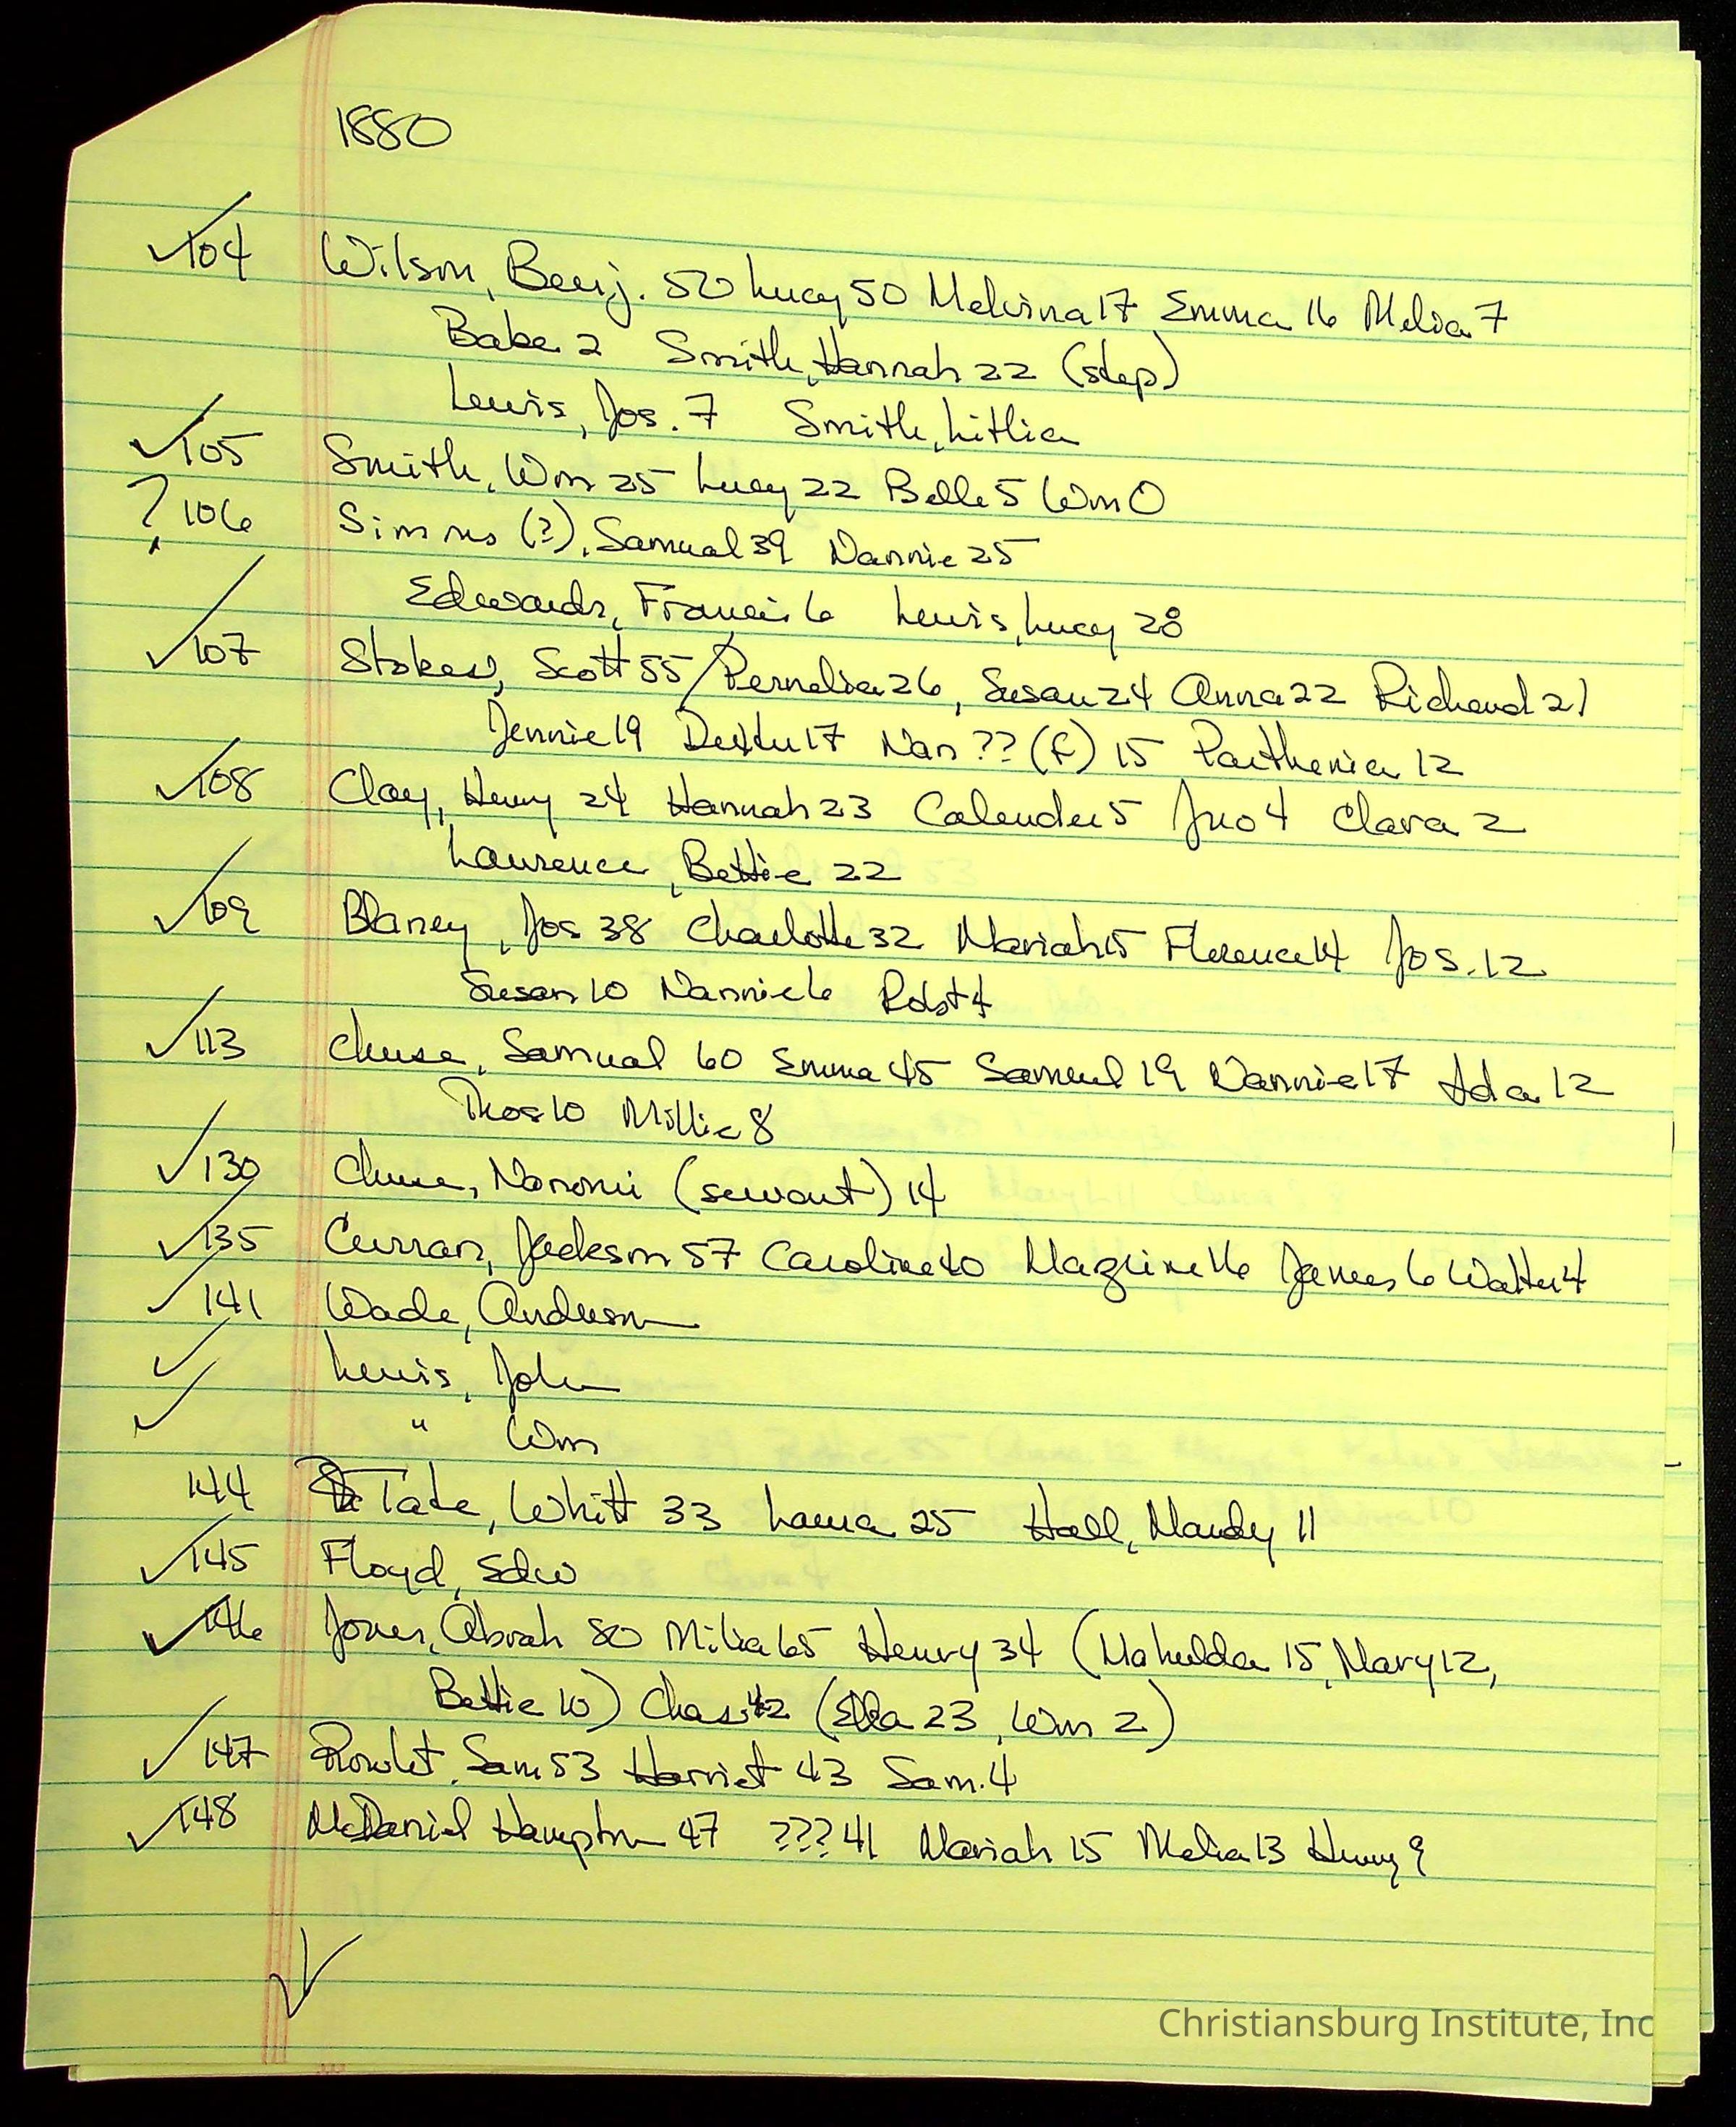 1880
✓104 Wilson, Benj. 50 Lucy 50 Melvina 17 Emma 16 Melia 7
Babe 2 Smith, Hannah 22 (step)
Lewis, Jos. 7 Smith, Litlia
✓105 Smith, Wm 25 Lucy 22 Belle 5 Wm 0
? 106 Simms (?), Samual 39 Nannie 25
Edwards, Francis 6 Lewis, Lucy 28
✓107 Stokes, Scott 55/Pernelia 26, Susan 24 Anna 22 Richard 21
Jennie 19 17 Nan ?? (f) 15 Parthenia 12
✓108 Clay, Henry 24 Hannah 23 Calender 5 Jno 4 Clara 2
Laurence, Bettie 22
✓109 Blaney, Jos 38 Charlotte 32 Mariah 15 Florence 14 Jos. 12
Susan 10 Nannie 6 Robt 4
✓113 Samual 60 Emma 45 Samuel 19 Nannie 17 Ada 12
Thos 10 Millie 8
✓130 (servant) 14
✓135 Curran, Jackson 57 Caroline 40 Magline 16 James 6 Walter 4
✓141 Wade, Anderson
✓ Lewis, John
✓ " Wm
144 Tate, Whitt 33 Laura 25 Hall, Mandy 11
✓145 Floyd, Edw
✓146 Jones, Abrah 80 Milia 65 Henry 34 (Mahulda 15, Mary 12,
Bettie 10) Chas. 42 (Ella 23, Wm 2)
✓147 Rowlet, Sam 53 Harriet 43 Sam. 4
✓148 McDaniel Hampton 47 ??? 41 Mariah 15 Melia 13 Henry 9
✓
Christiansburg Institute, Inc